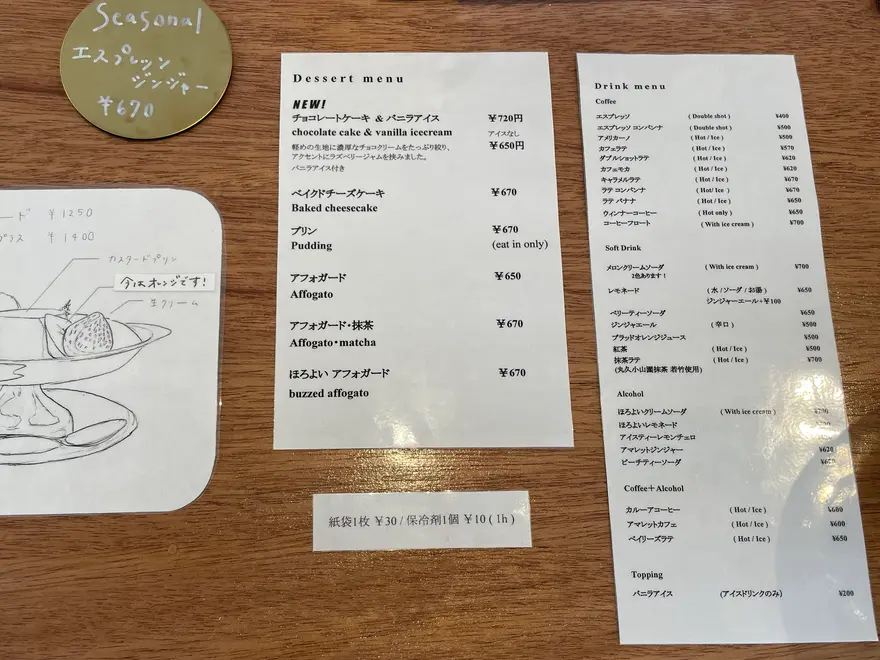 Seasonal
エスプレッソ
ジンジャー
¥670
ード ¥1250
プラス ¥1400
カスタードプリン
今はオレンジです!
生クリーム
Dessert menu
NEW!
チョコレートケーキ & バニラアイス ¥720円
chocolate cake & vanilla icecream アイスなし
¥650円
軽めの生地に濃厚なチョコクリームをたっぷり絞り、
アクセントにラズベリージャムを挟みました。
バニラアイス付き
ベイクドチーズケーキ ¥670
Baked cheesecake
プリン ¥670
Pudding (eat in only)
アフォガード ¥650
Affogato
アフォガード・抹茶 ¥670
Affogato・matcha
ほろよい アフォガード ¥670
buzzed affogato
紙袋1枚 ¥30 / 保冷剤1個 ¥10 ( 1h )
Drink menu
Coffee
エスプレッソ ( Double shot ) ¥400
エスプレッソ コンパンナ ( Double shot ) ¥500
アメリカーノ ( Hot / Ice ) ¥500
カフェラテ ( Hot / Ice ) ¥570
ダブルショットラテ ( Hot / Ice ) ¥620
カフェモカ ( Hot / Ice ) ¥620
キャラメルラテ ( Hot / Ice ) ¥670
ラテ コンパンナ ( Hot/ Ice ) ¥670
ラテ バナナ ( Hot / Ice ) ¥650
ウィンナーコーヒー ( Hot only ) ¥650
コーヒーフロート ( With ice cream ) ¥700
Soft Drink
メロンクリームソーダ ( With ice cream ) ¥700
2色あります!
レモネード ( 水 / ソーダ / お湯 ) ¥650
ジンジャーエール+¥100
ベリーティーソーダ ¥650
ジンジャエール ( 辛口 ) ¥500
ブラッドオレンジジュース ¥500
紅茶 ( Hot / Ice ) ¥500
抹茶ラテ ( Hot / Ice ) ¥700
(丸久小山園抹茶 若竹使用)
Alcohol
ほろよいクリームソーダ ( With ice cream )
ほろよいレモネード
アイスティーレモンチェロ
アマレットジンジャー ¥620
ピーチティーソーダ
Coffee+Alcohol
カルーアコーヒー ( Hot / Ice ) ¥600
アマレットカフェ ( Hot / Ice ) ¥600
ベイリーズラテ ( Hot / Ice ) ¥650
Topping
バニラアイス (アイスドリンクのみ) ¥200